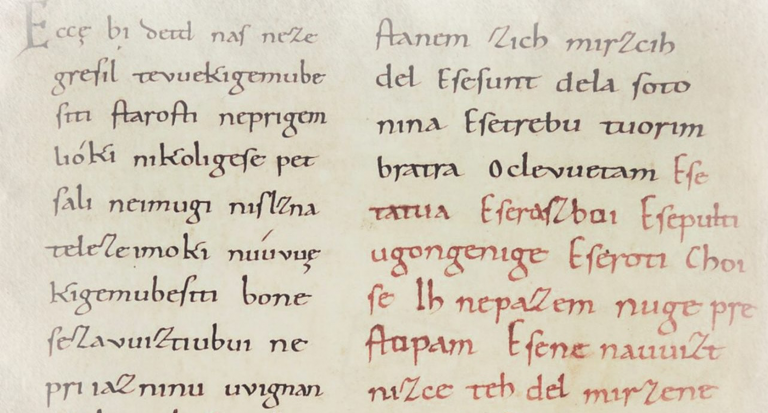 Eccę bi detd naſ neze
greſil tevuekigemube
ſiti ſtaroſti neprigem
lióki nikoligeſe pet
ſali neimugi niſlzna
teleze imoki nuúvuę
kigemubeſiti bone
ſezavuiztiubui ne
priiazninu uvignan
ſtanem zich mirzcih
del Eſeſunt dela ſoto
nina Eſetrebu tuorim
bratra Oclevuetam Eſe
tatua Eſeraſzboi Eſepulti
ugongenige Eſeroti Choi
ſe Ih nepazem nuge pre
ſtopam Eſene nauuizt
nizce teh del mirzene